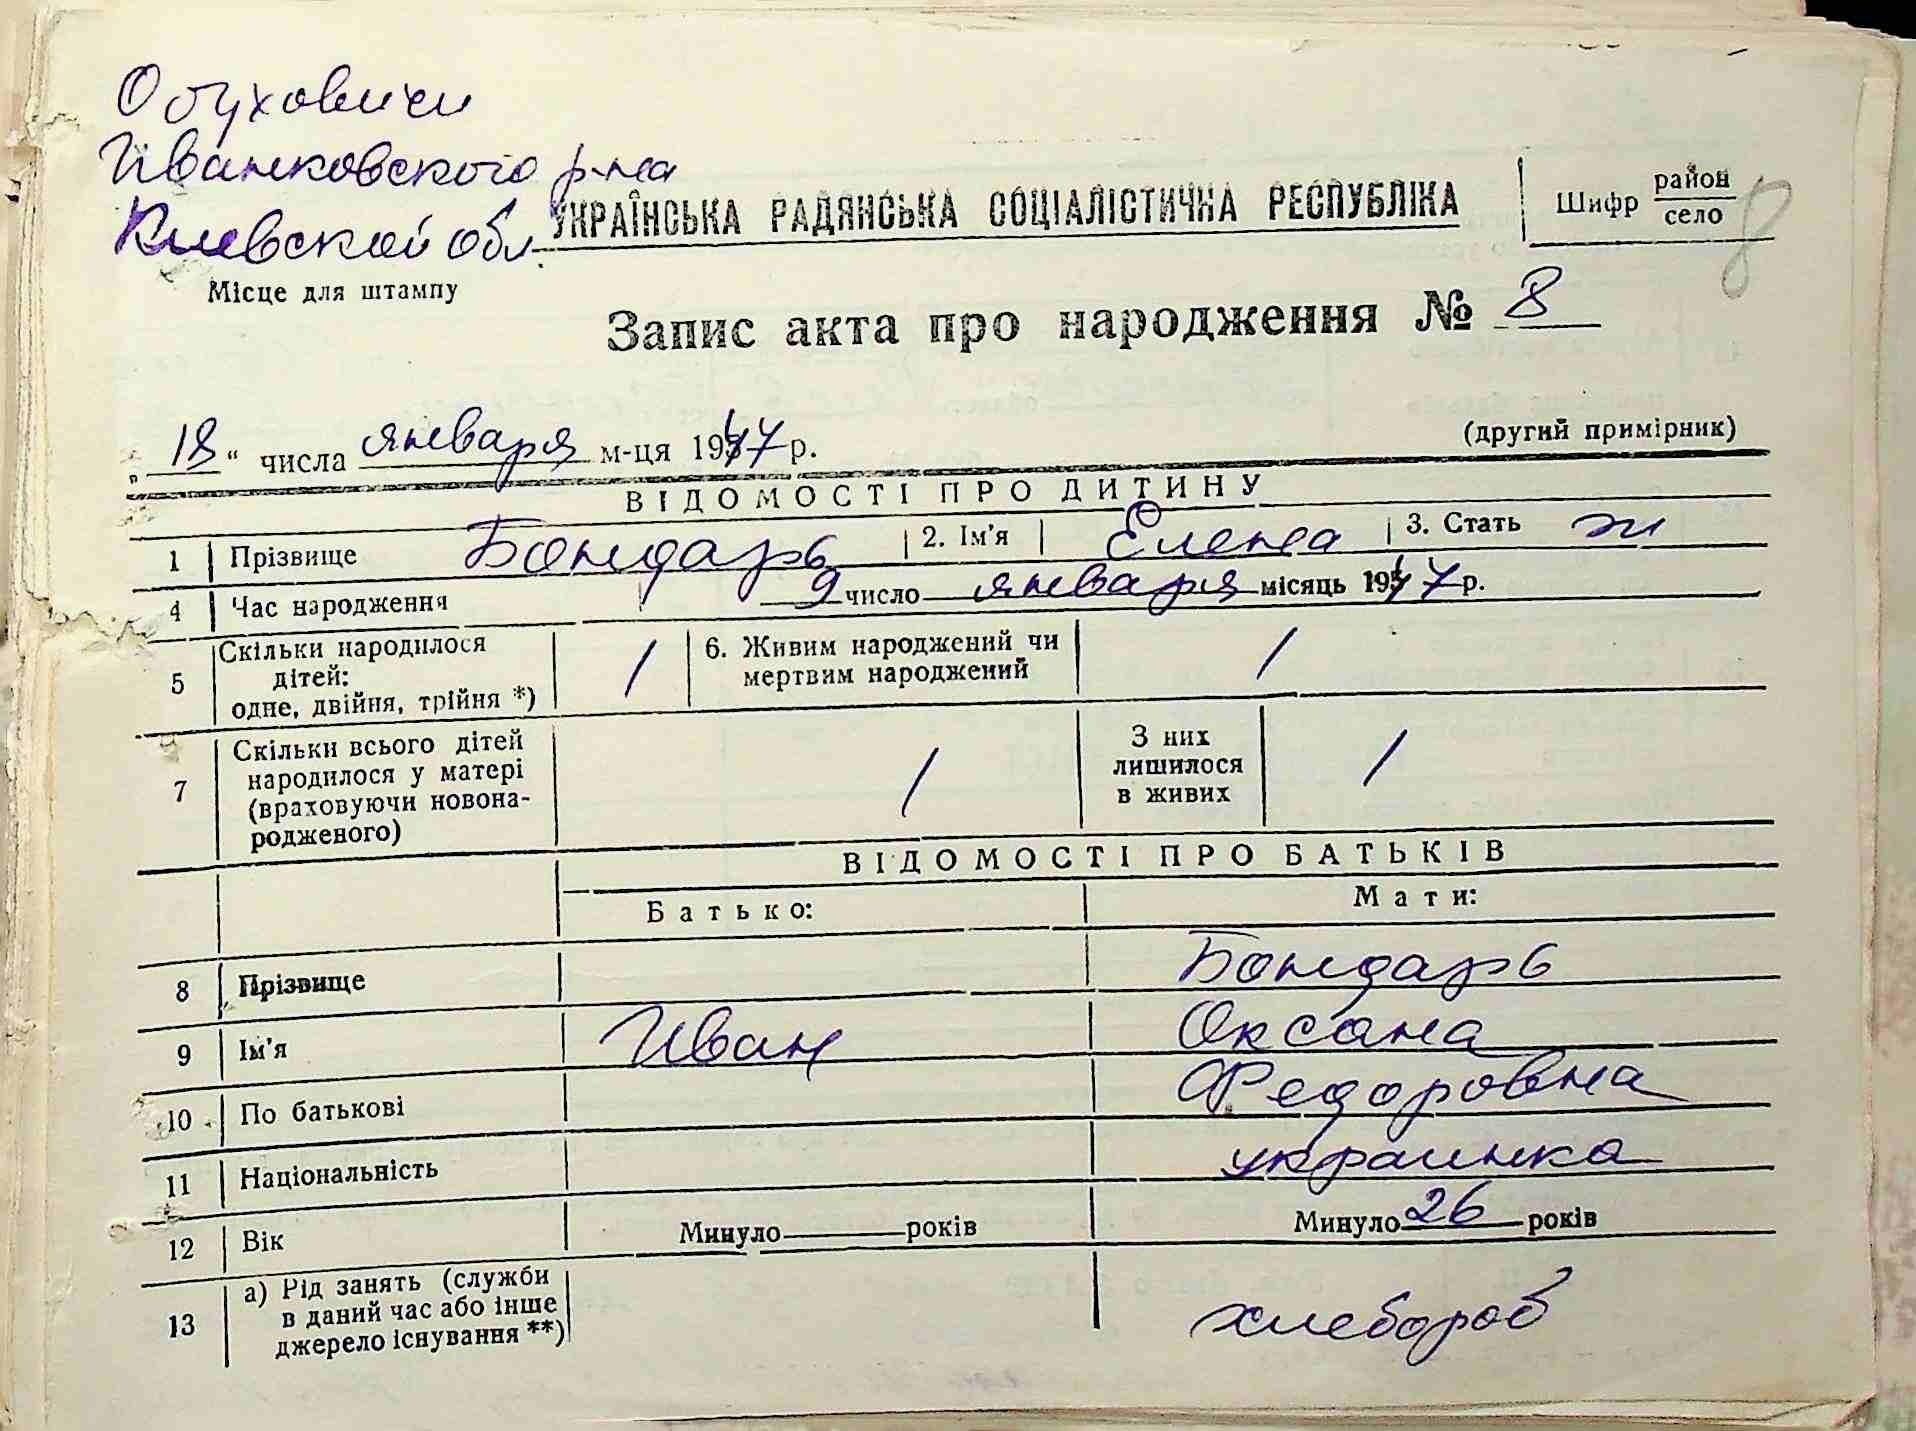 Обуховичи
Иванковского р-на
Киевской обл.
УКРАЇНСЬКА РАДЯНСЬКА СОЦІАЛІСТИЧНА РЕСПУБЛІКА
Шифр район село
8
Місце для штампу
Запис акта про народження № 8
„18“ числа января м-ця 1947 р.
(другий примірник)
ВІДОМОСТІ ПРО ДИТИНУ
1 Прізвище Бондарь 2. Ім'я Елена 3. Стать ж
4 Час народження 9 число января місяць 1947 р.
5 Скільки народилося дітей: одне, двійня, трійня *) / 6. Живим народжений чи мертвим народжений /
7 Скільки всього дітей народилося у матері (враховуючи новона-родженого) / З них лишилося в живих /
ВІДОМОСТІ ПРО БАТЬКІВ
Батько: Мати:
8 Прізвище Бондарь
9 Ім'я Иван Оксана
10 По батькові Федоровна
11 Національність украинка
12 Вік Минуло років Минуло 26 років
13 а) Рід занять (служби в даний час або інше джерело існування **) хлебороб